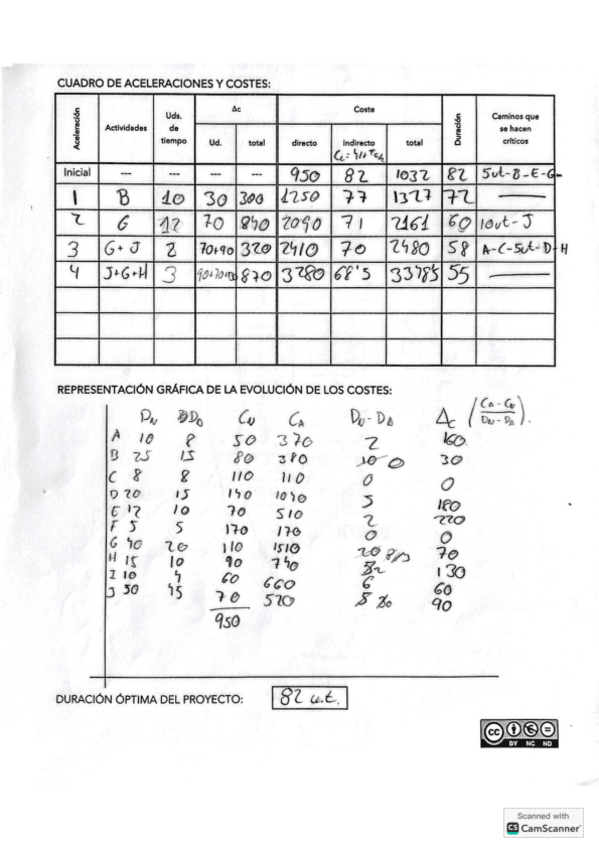 CUADRO DE ACELERACIONES Y COSTES:
Aceleración Actividades Uds. de tiempo Δc Coste Duración Caminos que se hacen críticos
Ud. total directo indirecto total
Inicial --- --- --- --- 950 82 1032 82 5ut-B-E-G
1 B 10 30 300 1250 77 1327 72 —
2 G 12 70 840 2090 71 2161 60 10ut-J
3 G+J 2 70+90 320 2410 70 2480 58 A-C-5ut-D-H
4 J+G+H 3 870 3280 68'5 55 —
REPRESENTACIÓN GRÁFICA DE LA EVOLUCIÓN DE LOS COSTES:
DN DA CN CA DN-DA Δc (CA-CN / DN-DA).
A 10 8 50 370 2 160
B 25 15 80 380 30
C 8 8 110 110 0 0
D 20 15 140 1040 5 180
E 12 10 70 510 2 220
F 5 5 170 170 0 0
G 40 20 110 1510 20 70
H 15 10 90 740 130
I 10 4 60 660 6 60
J 50 45 70 520 90
950
DURACIÓN ÓPTIMA DEL PROYECTO: 82 u.t.
cc
BY NC ND
Scanned with
CS CamScanner